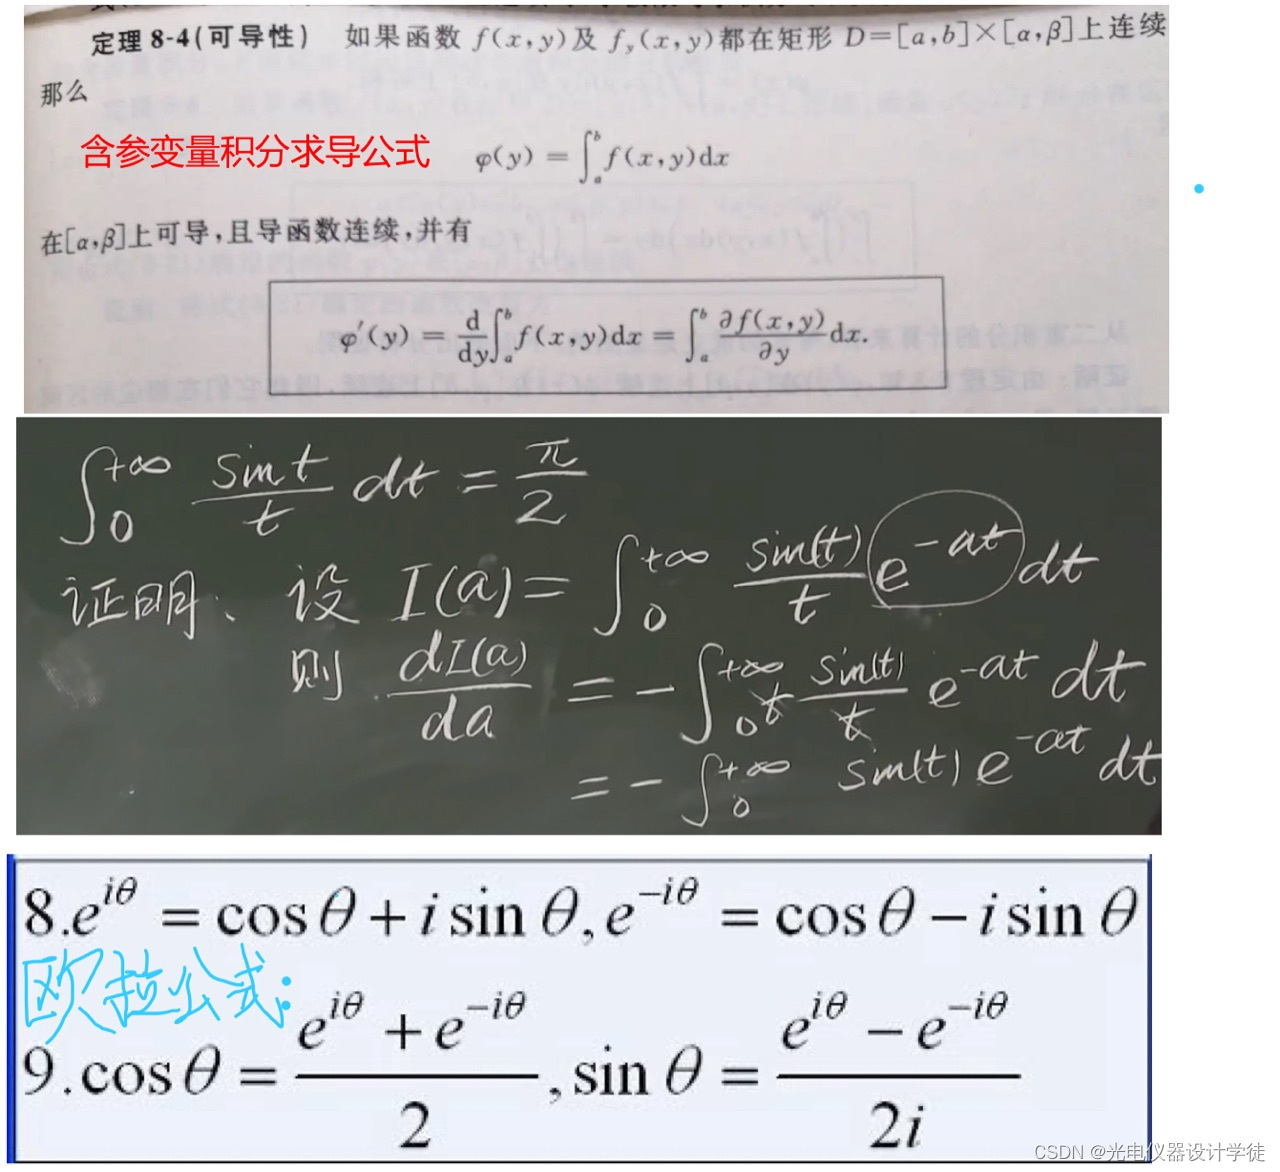 定理 8-4(可导性) 如果函数 f(x,y)及 fy(x,y)都在矩形 D=[a,b]×[α,β]上连续
那么
含参变量积分求导公式 φ(y) = ∫_a^b f(x,y)dx
在[α,β]上可导,且导函数连续,并有
φ′(y) = d/dy ∫_a^b f(x,y)dx = ∫_a^b ∂f(x,y)/∂y dx.
∫_0^{+∞} sint/t dt = π/2
证明、设 I(a) = ∫_0^{+∞} sin(t)/t e^{-at} dt
则 dI(a)/da = -∫_0^{+∞} t sin(t)/t e^{-at} dt
= -∫_0^{+∞} sin(t) e^{-at} dt
8.e^{iθ} = cosθ + i sinθ, e^{-iθ} = cosθ − i sinθ
欧拉公式:
9.cosθ = (e^{iθ} + e^{-iθ})/2, sinθ = (e^{iθ} − e^{-iθ})/2i
CSDN @光电仪器设计学徒